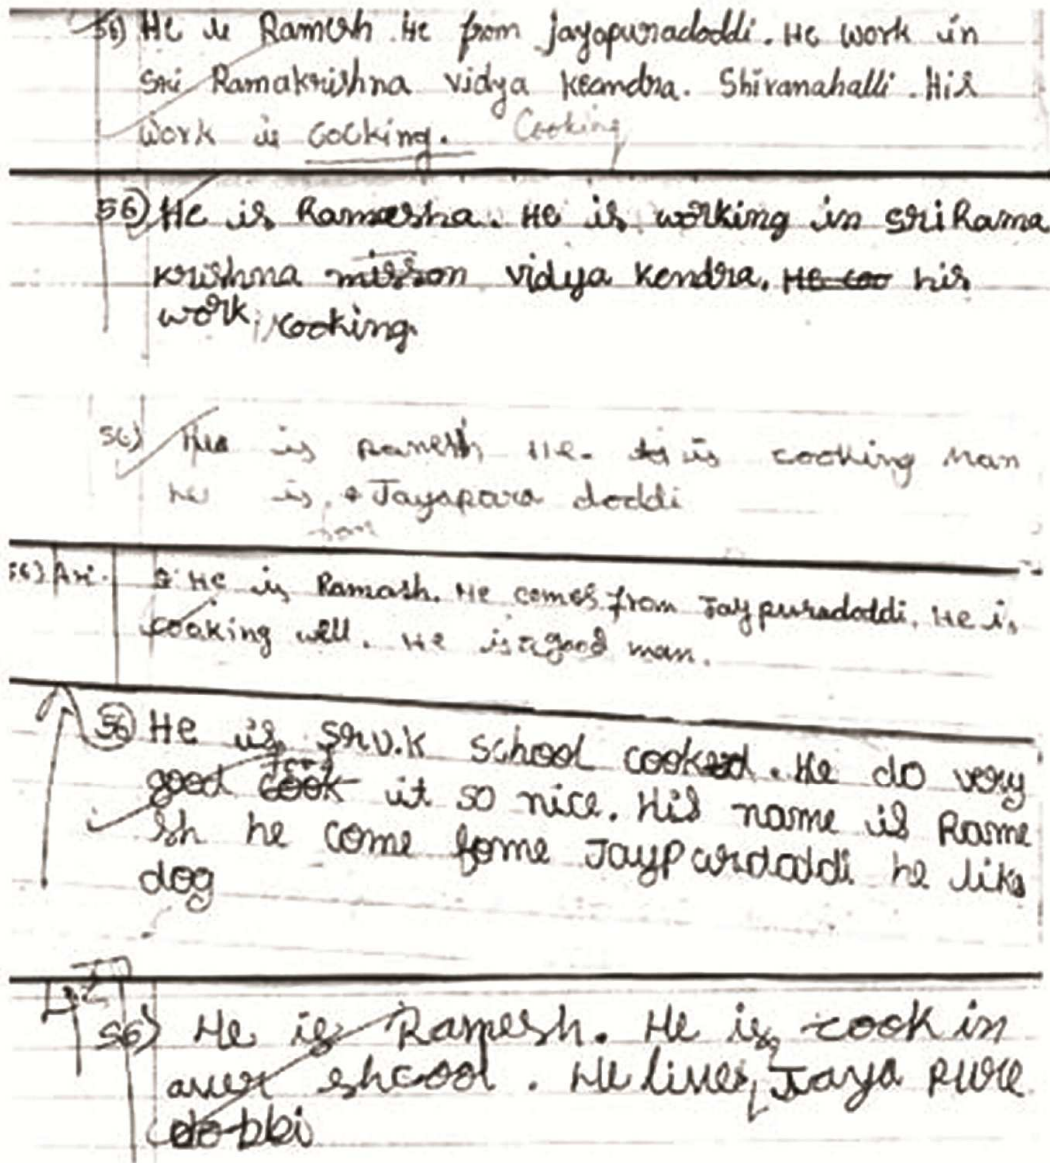 56) He is Ramesh. He from Jayapuradoddi. He work in
Sri Ramakrishna vidya keandra. Shivanahalli. His
work is cocking. Cooking
56) He is Ramesha. He is working in Sri Rama
krishna mission vidya kendra. He coo his
work, cooking.
56) is Ramesh He. is cooking man
he is Jayapura doddi
from
56) Ari. He is Ramash. He comes from Jaypuradoddi. He is
coaking well. He is a good man.
56 He is SRV.K school cooked. He do very
good cook food it so nice. His name is Rame
sh he come fome Jaypurdaddi he like
dog
56) He is Ramesh. He is cook in
aver shcool. He lives Jaya pure
dobbi